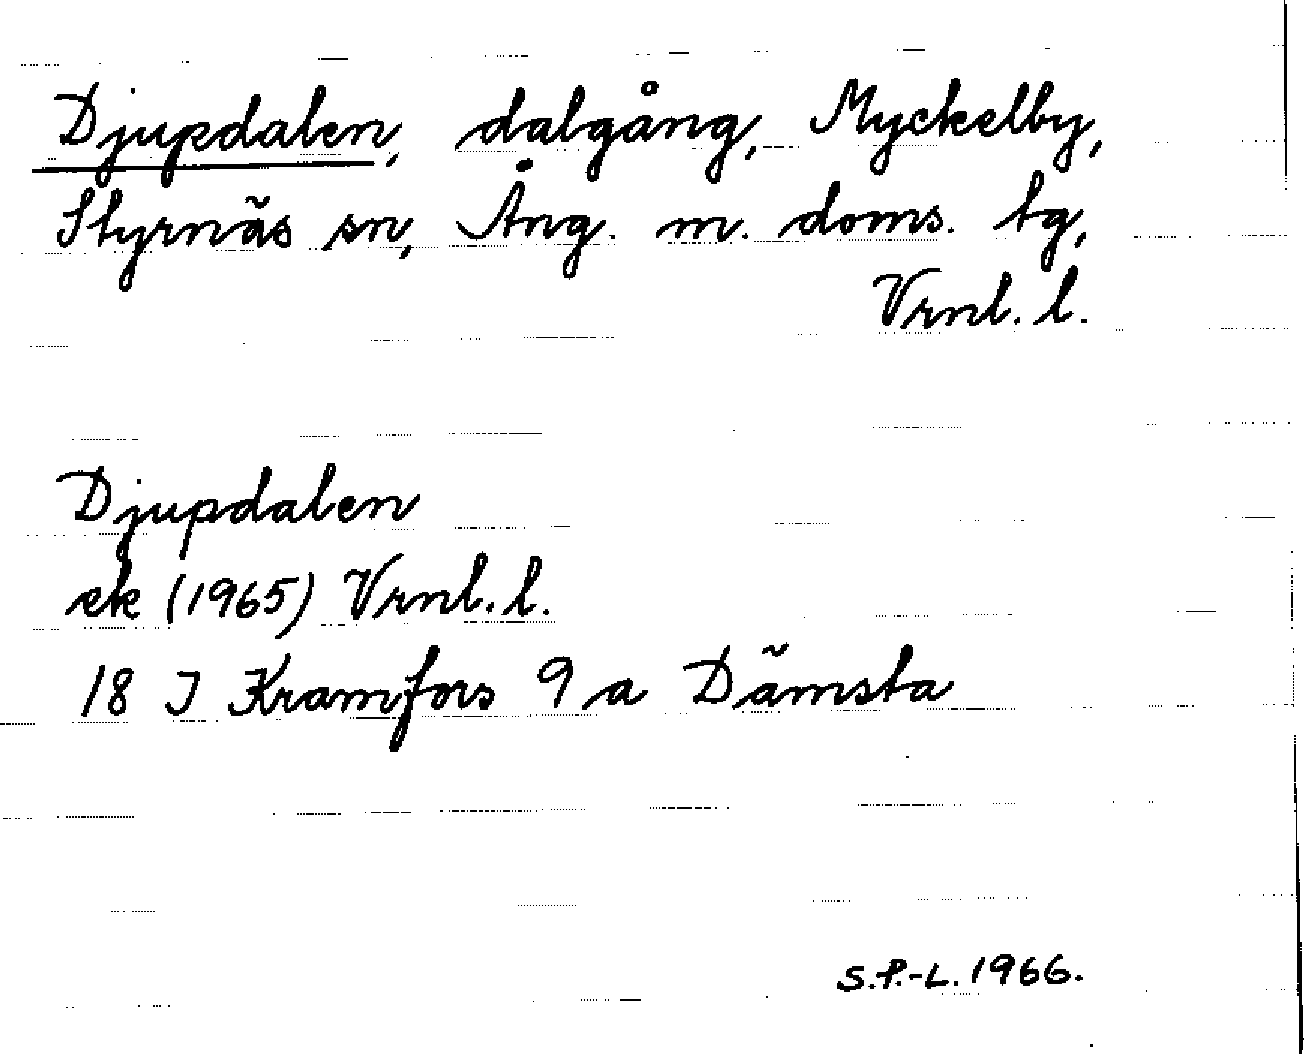 Djupdalen, dalgång, Myckelby,
Styrnäs sn, Ång. m. doms. tg,
Vrnl. l.
Djupdalen
ek (1965) Vrnl. l.
18 I Kramfors 9 a Dämsta
S.P.-L. 1966.